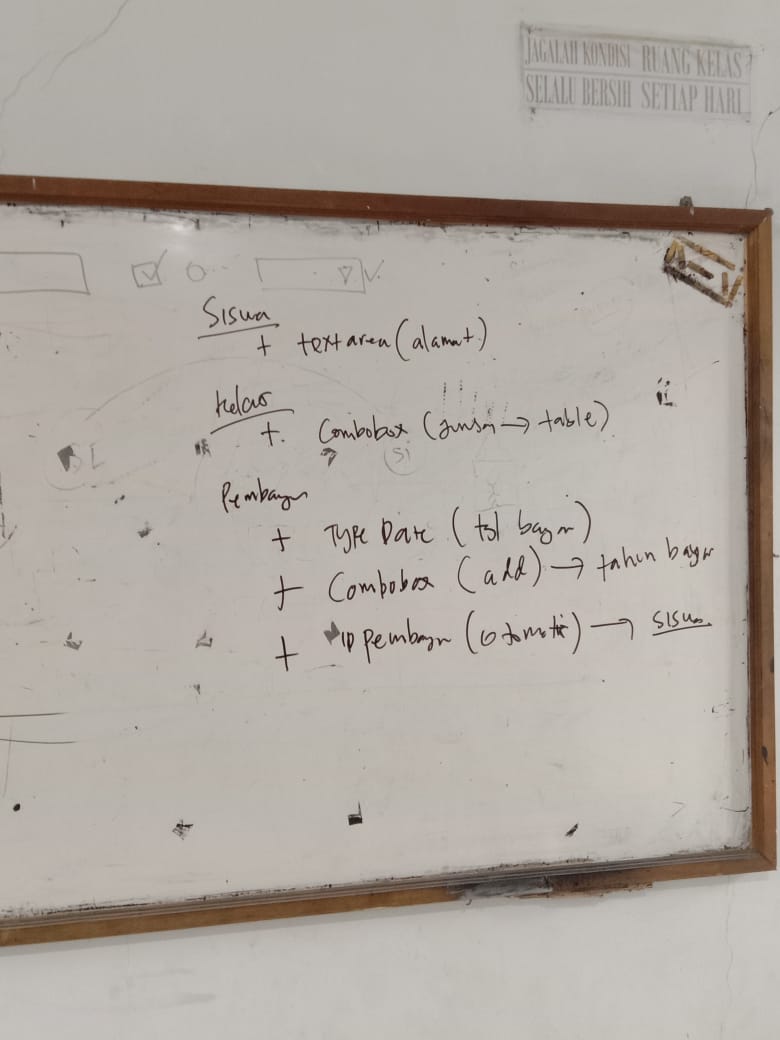 JAGALAH KONDISI RUANG KELAS
SELALU BERSIH SETIAP HARI
Siswa
+ textarea (alamat)
Kelas
+. Combobox (Jurusan → table)
SI
Pembayaran
+ Type Date (tgl bayar)
+ Combobox (add) → tahun bayar
+ ID Pembayaran (otomatis) → siswa